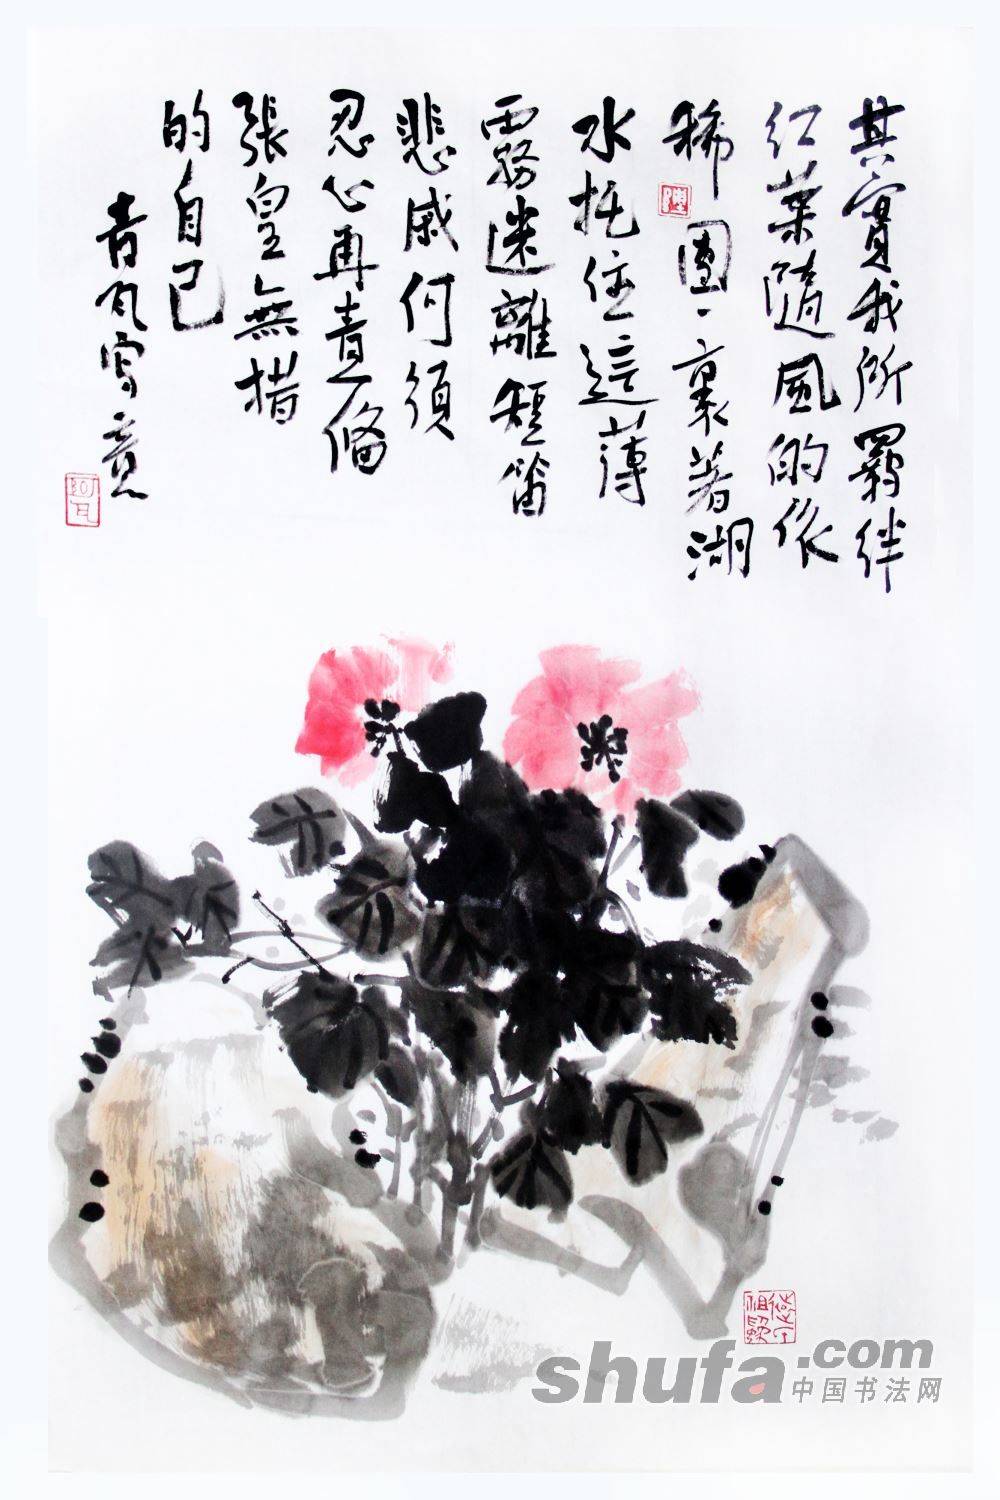 其實我所羈絆
红葉隨風的依
稀團々裹著湖
水托住這薄
霧迷離短笛
悲戚何須
忍心再責備
張皇無措
的自己
寫意
shufa.com
中国书法网